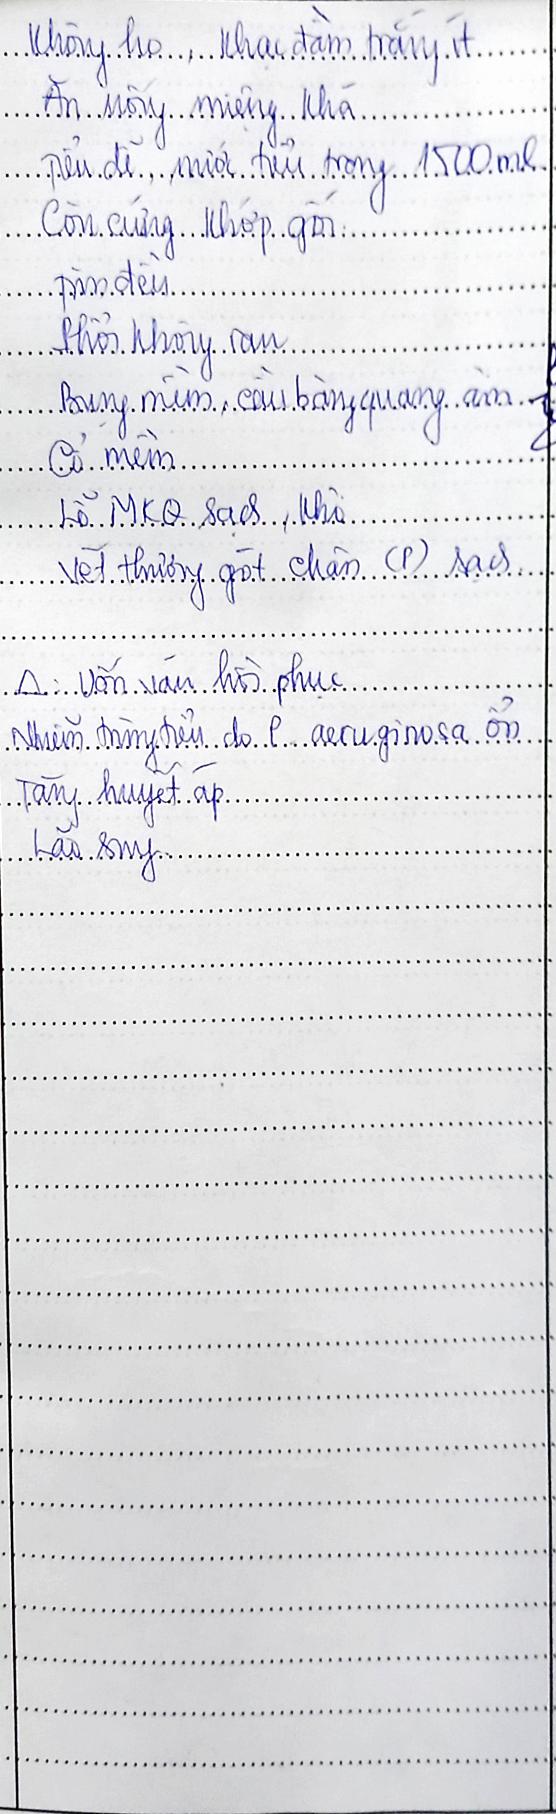 Không ho, khạc đàm trắng ít
Ăn uống miệng khá
Tiểu dễ, nước tiểu trong 1500 ml
Còn cứng khớp gối
Tim đều
Phổi không ran
Bụng mềm, cầu bàng quang âm
Cổ mềm
Lỗ MKQ sạch, khô
Vết thương gót chân (P) sạch.
Δ: Uốn ván hồi phục
Nhiễm trùng tiểu do P. aeruginosa ổn
Tăng huyết áp
Lão suy